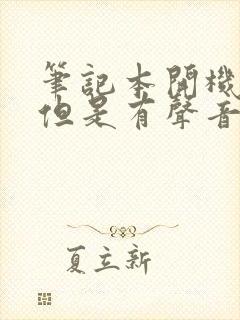 筆記本開機
但是有聲音
夏立新